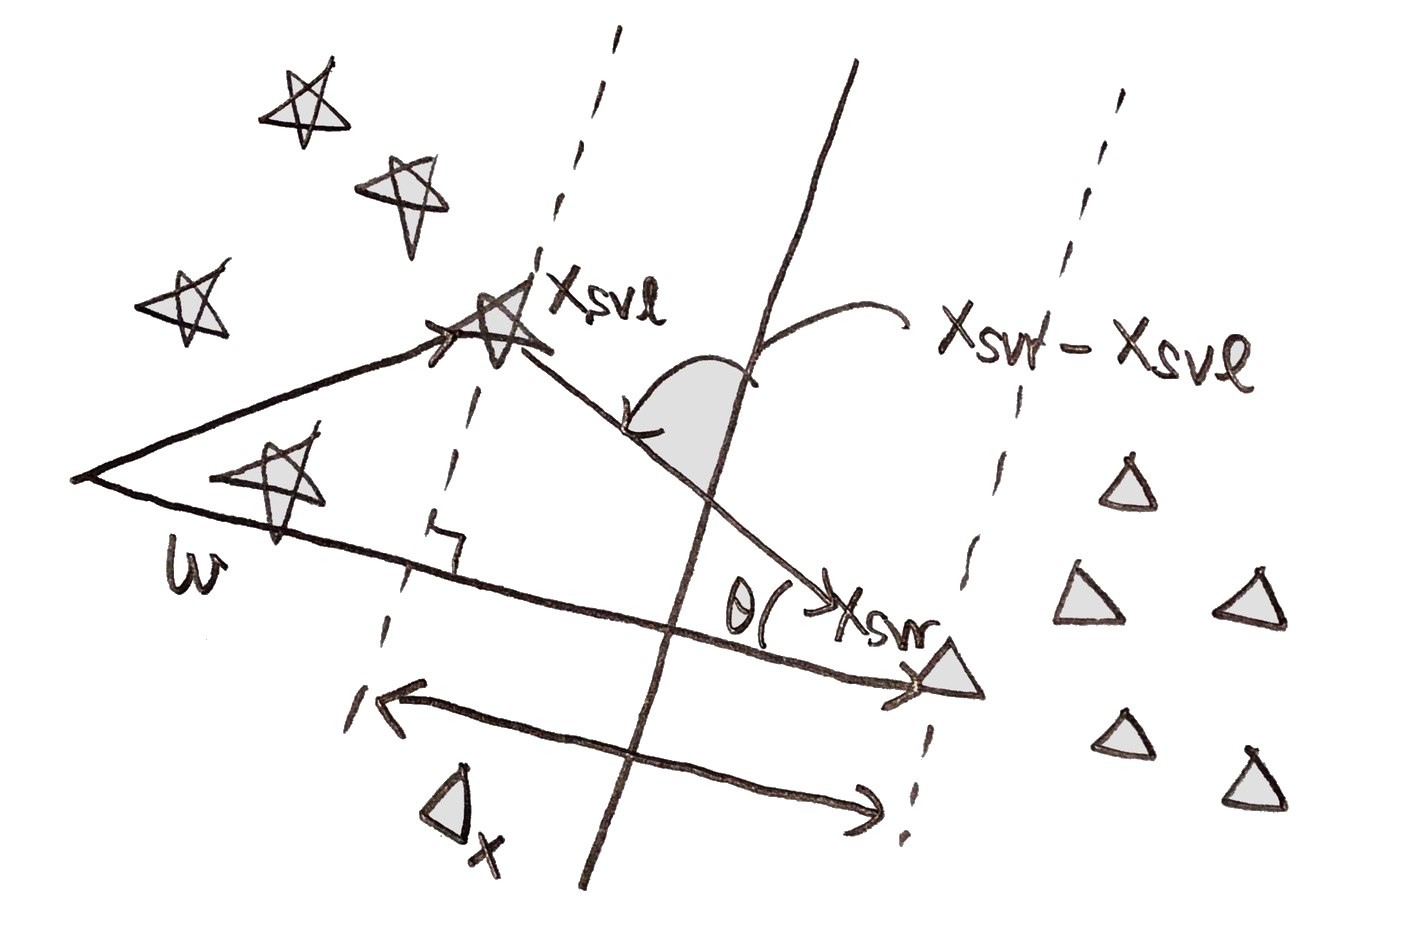 xsvl
xsvr - xsvl
w
θ
xsvr
Δx